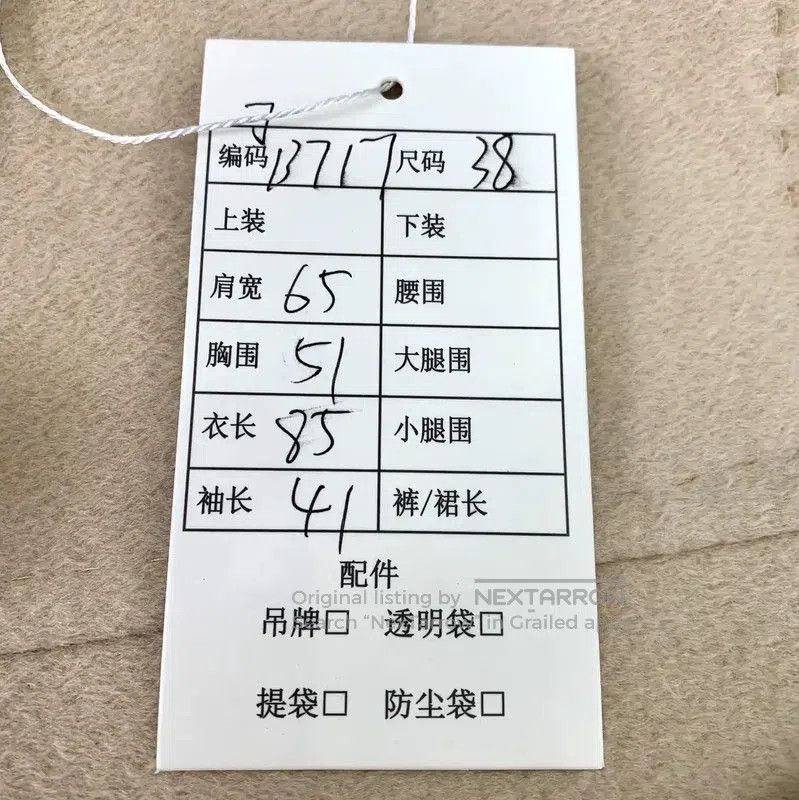 编码 13717 尺码 38
上装 下装
肩宽 65 腰围
胸围 51 大腿围
衣长 85 小腿围
袖长 41 裤/裙长
配件
Original listing by NEXTARROW
吊牌□ 透明袋□
Search "Nextarrow" in Grailed app
提袋□ 防尘袋□